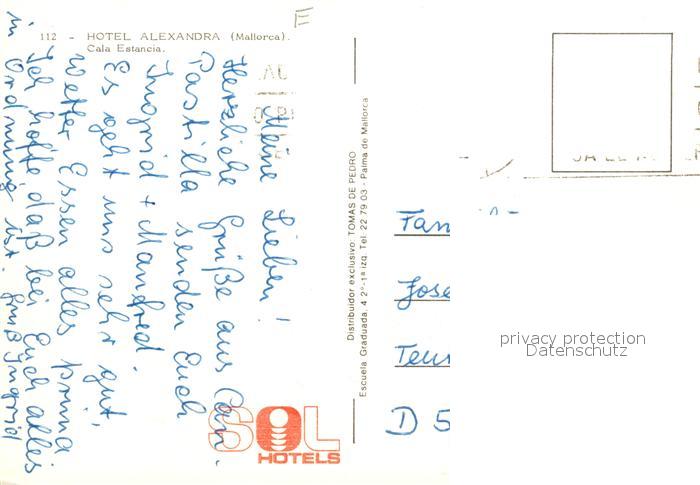 112 - HOTEL ALEXANDRA (Mallorca).
Cala Estancia.
Meine Lieben!
Herzliche Grüße aus Can
Pastilla senden Euch
Ingrid + Manfred.
Es geht uns sehr gut,
Wetter Essen alles prima
Ich hoffe daß bei Euch alles
in Ordnung ist. Gruß Ingrid
SOL
HOTELS
Distribuidor exclusivo: TOMAS DE PEDRO
Escuela Graduada, 4 2º-1ª izq. Tel. 22 79 03 - Palma de Mallorca
Fam
Jose
D 5
privacy protection
Datenschutz